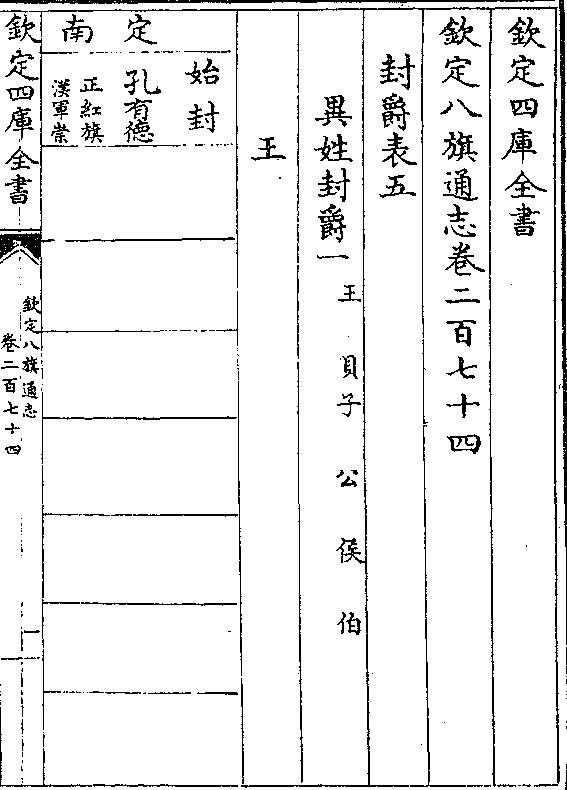 欽定四庫全書
欽定八旗通志卷二百七十四
封爵表五
異姓封爵一 王 貝子 公 侯 伯
王
定南
始封
孔有德
正紅旗
漢軍崇
欽定四庫全書
欽定八旗通志
卷二百七十四
一